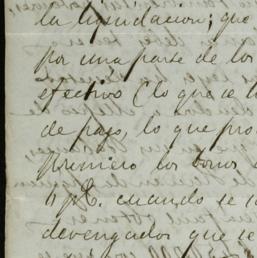 la liquidacion; que
por una parte de los
efectivo (lo que se
de pago, lo que pro
primero los bonos
4 p%. cuando se
devengados que se